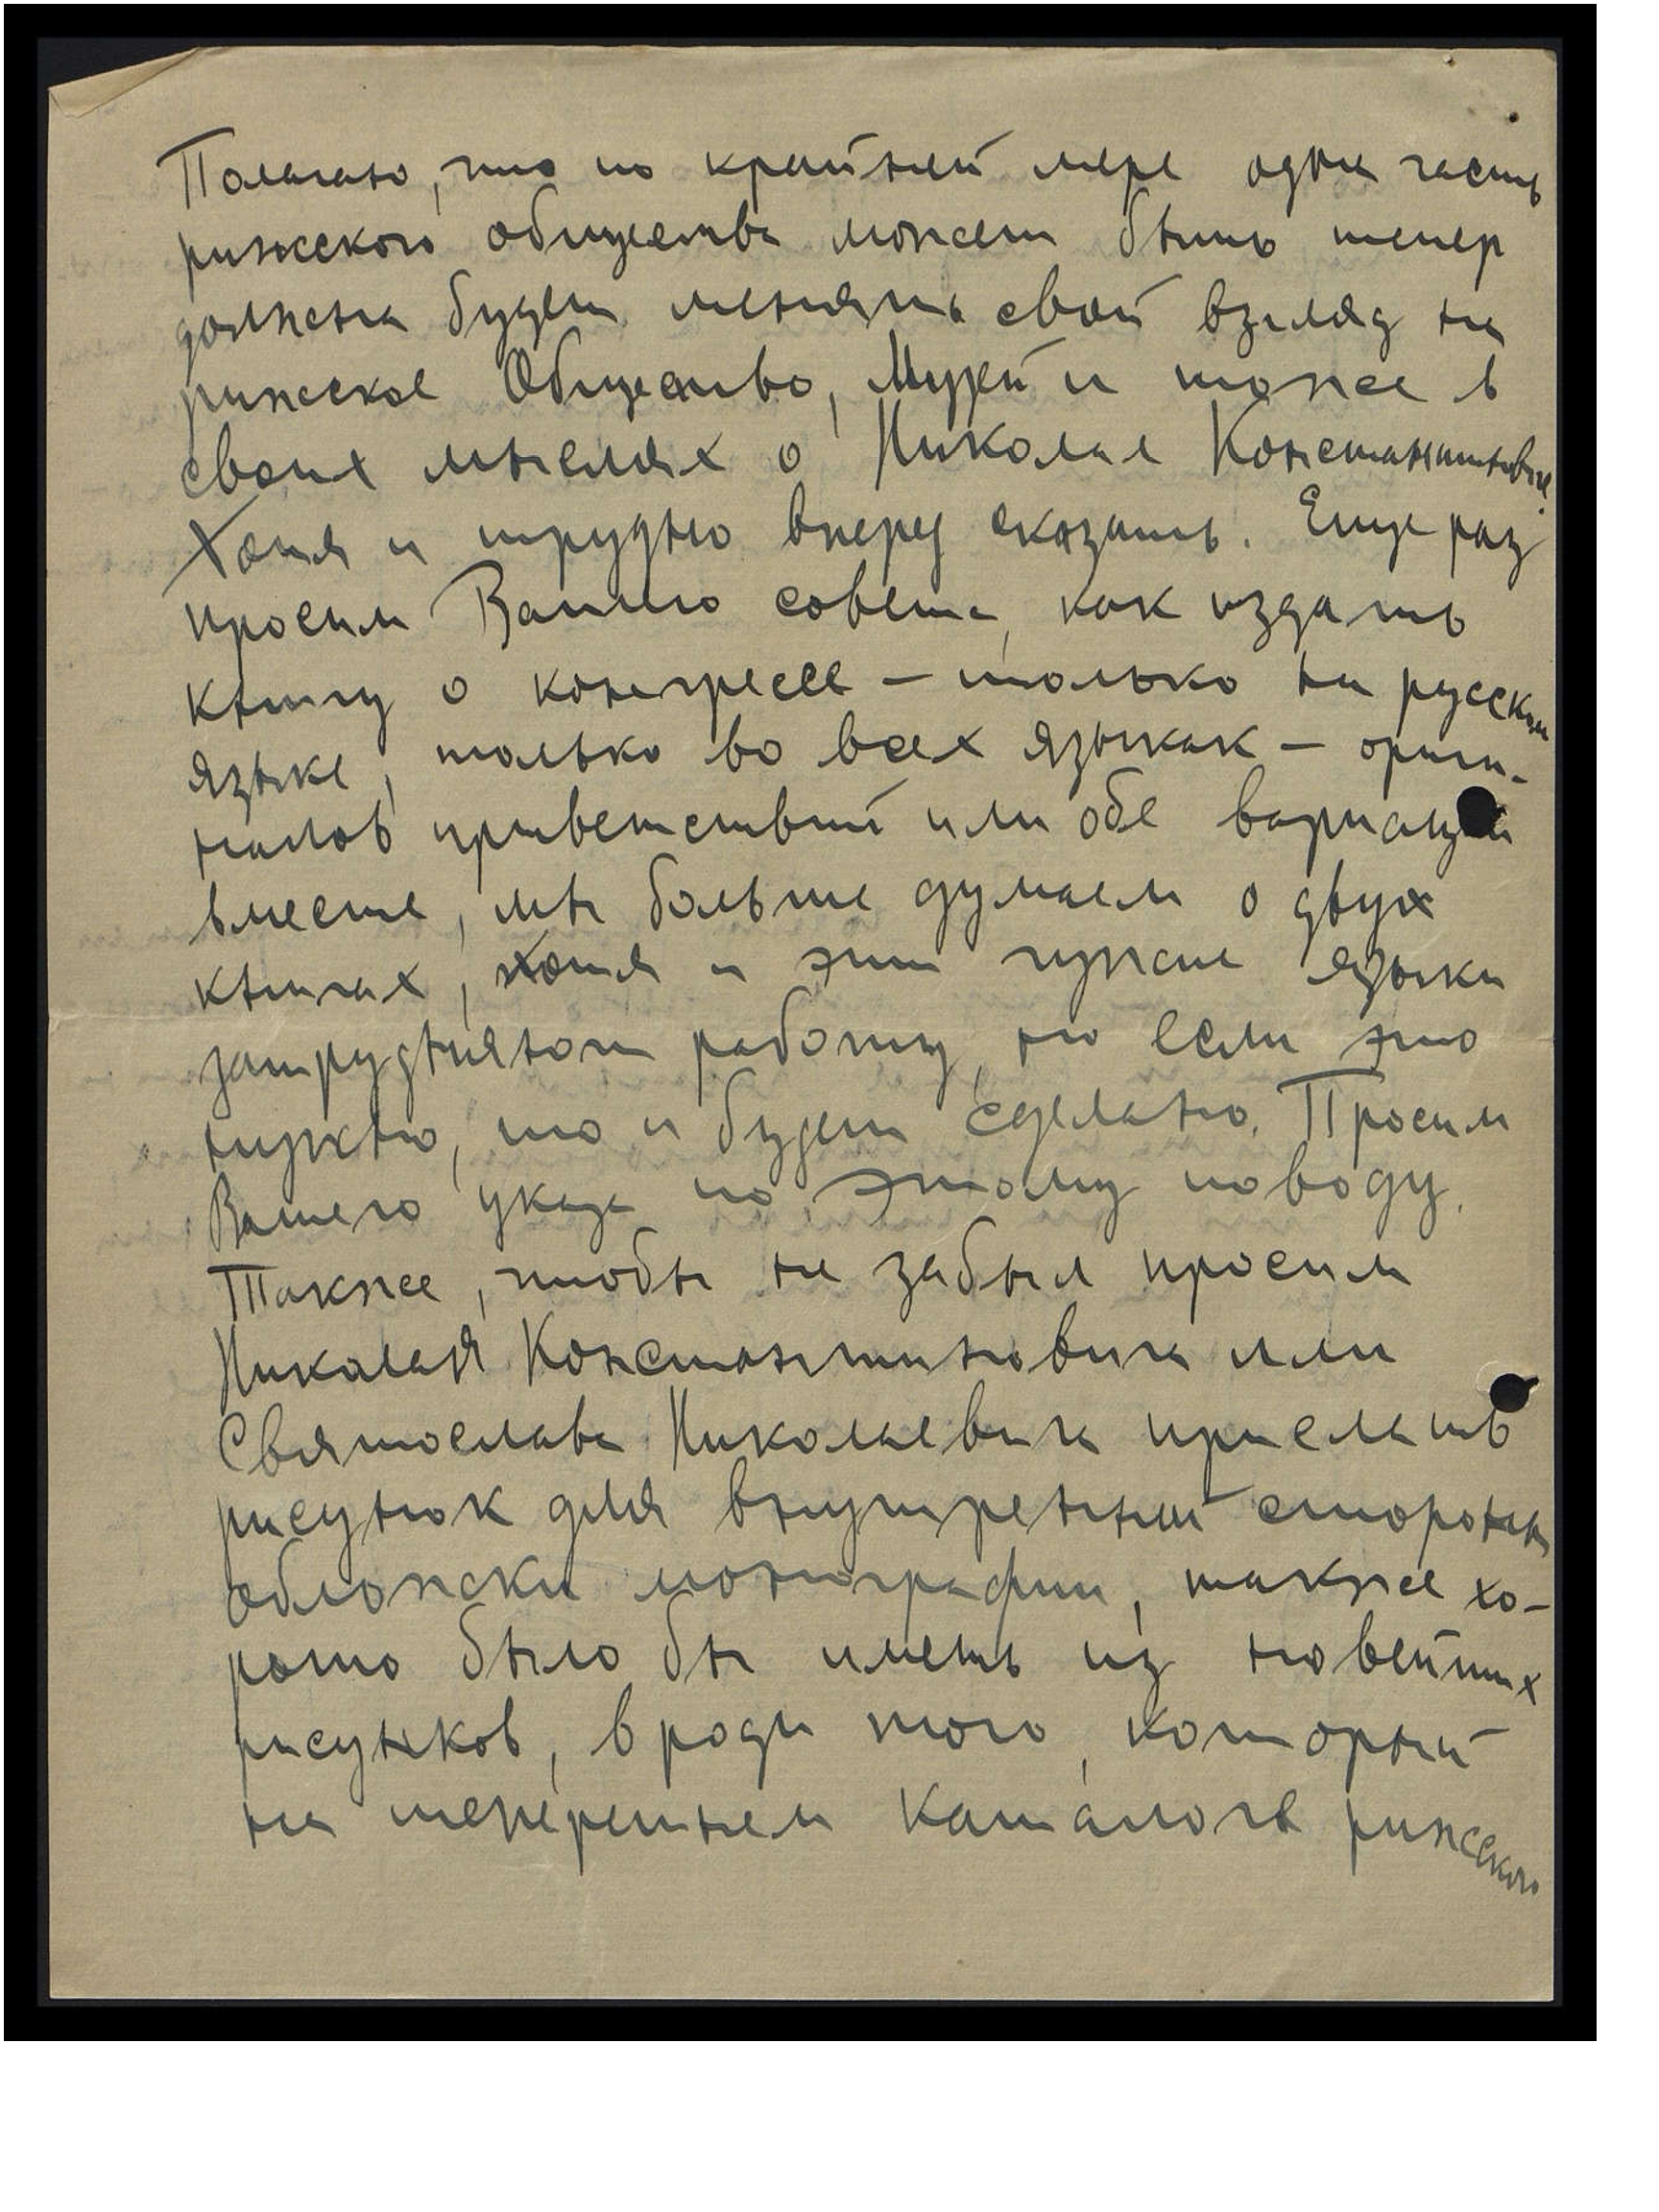 Полагаю, что по крайней мере одна часть
рижского общества может быть тепер
должена будет менять свой взгляд на
рижское Общество, Музей и тоже в
своих мыслях о Николае Константиновиче.
Хотя и трудно вперед сказать. Еще раз
просим Вашего совета, как издать
книгу о конгрессе – только на русском
языке, только во всех языкак – ориги-
налов приветствий или обе вариации
вместе, мы больше думаем о двух
книгах, хотя и эти чужие языки
затрудняют работу, но если это
нужно, то и будет сделано. Просим
Вашего указа по этому поводу.
Также, чтобы не забыл просим
Николая Константиновича или
Святослава Николаевича прислать
рисунок для внутренний стороны
обложски монографии, также хо-
рошо было бы иметь из новейших
рисунков, в роди того, который
на теперешнем каталоге рижского